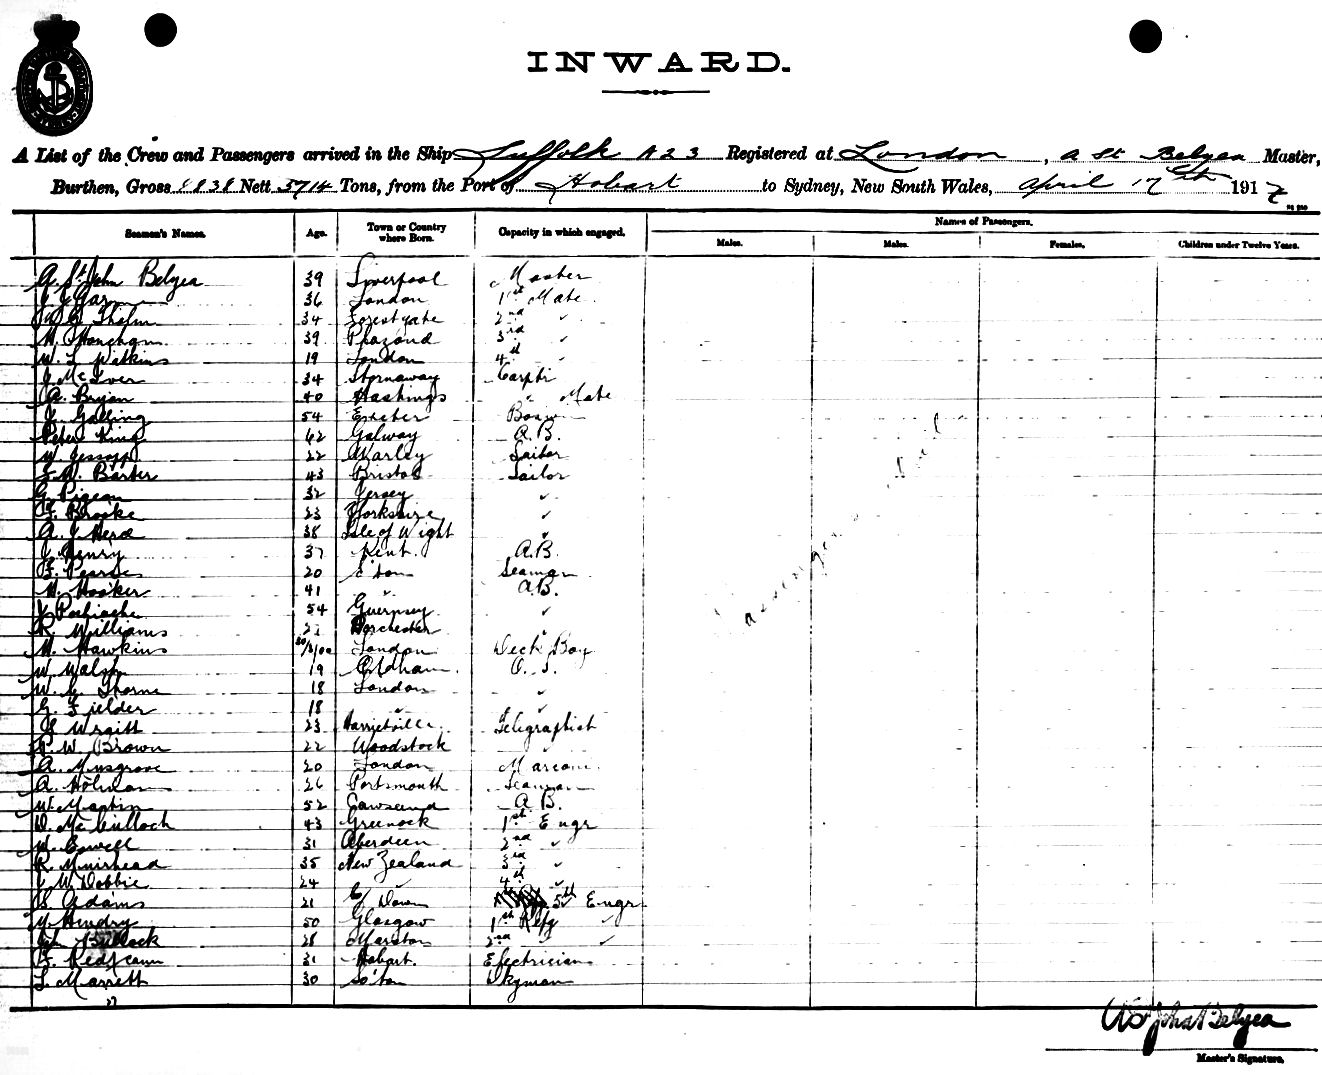 INWARD.
A List of the Crew and Passengers arrived in the Ship Suffolk A23 Registered at London, A St Belyea Master,
Burthen, Gross Nett 3714 Tons, from the Port of Hobart to Sydney, New South Wales, April 17th 1917
Names of Passengers.
Seamen's Names. Age. Town or Country where Born. Capacity in which engaged. Males. Males. Females. Children under Twelve Years.
A. St John Belyea 39 Liverpool Master
36 London 1st Mate
34 Forestgate 2nd ✓
39 3rd ✓
W. L Watkins 19 London 4th ✓
J. McIver 34 Stornaway Carptr
A. Bryan 40 Hastings " Mate
J. Golling 54 Exeter Bosun
Peter King 62 Galway A.B.
W. Jessopp 22 Warley Sailor
F. W. Barter 43 Bristol Sailor
G. Pigeon 32 Jersey ✓
F. Brooke 23 Yorkshire ✓
A. J. Herd 38 Isle of Wight ✓
J. Henry 37 Kent. A.B.
F. Pearse 20 Seaman
W. Hooker 41 ✓ A.B.
54 Guernsey ✓
R. Williams Dorchester ✓
W. Hawkins London Deck Boy
W. Walsh 19 Oldham O. S.
W. G. Thorne 18 London ✓
G. Fielder 18 ✓ ✓
S Wraitt 23 Harrietville Telegraphist
P. W. Brown 22 Woodstock ✓
A. Musgrove 20 London Marconi
A. Holman 26 Portsmouth Seaman
W. Martin 52 Cawsand A.B.
D. McCulloch 43 Greenock 1st Engr
W. Cowell 31 Aberdeen 2nd ✓
R. Muirhead 35 New Zealand 3rd ✓
J W Dobbie 24 ✓ 4th ✓
S. Adams 21 C/ Down 5th Engr
Y. Hendry 50 Glasgow 1st Refg ✓
Bullock 28 Marston 2nd ✓ ✓
F. 31 Hobart. Electrician
L. Marrett 30 So'ton Dkyman
Passengers
A St John Belyea
Master's Signature.